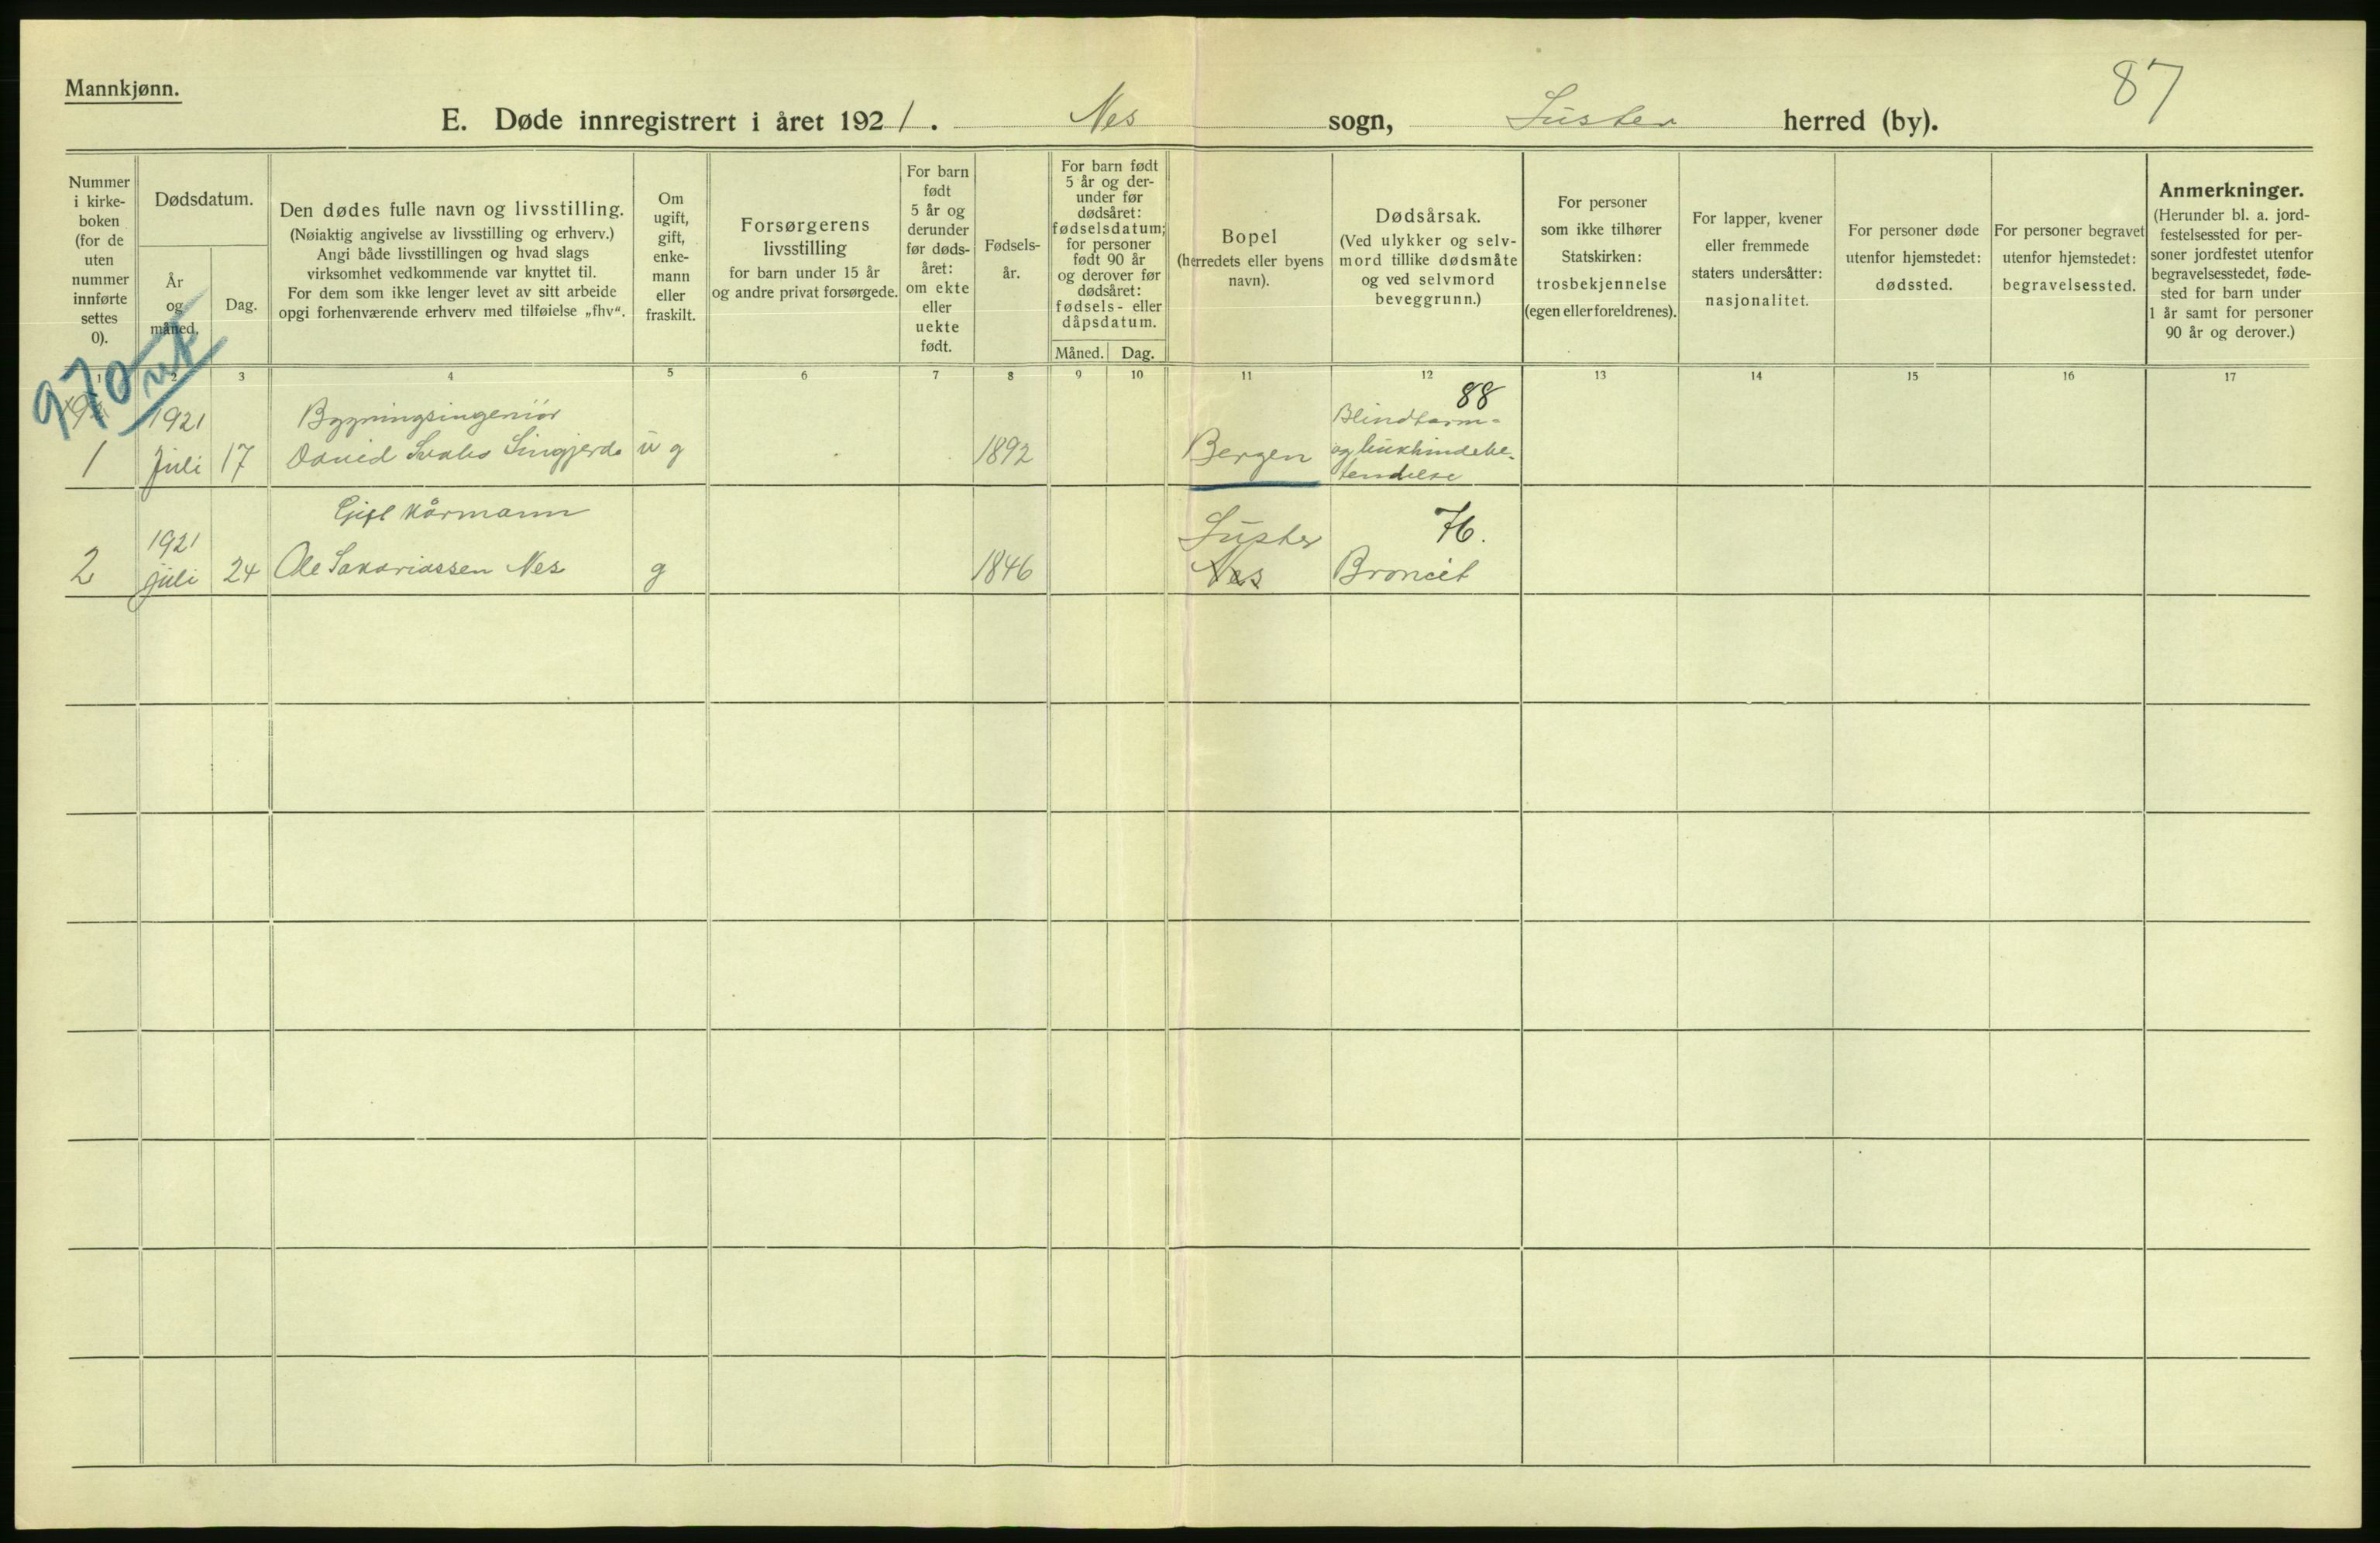 Mannkjønn.
87
E. Døde innregistrert i året 1921. Nes sogn, Luster herred (by).
Nummer
i kirke-
boken
(for de
uten
nummer
innførte
settes
0).
Dødsdatum.
År
og
måned.
Dag.
Den dødes fulle navn og livsstilling.
(Nøiaktig angivelse av livsstilling og erhverv.)
Angi både livsstillingen og hvad slags
virksomhet vedkommende var knyttet til.
For dem som ikke lenger levet av sitt arbeide
opgi forhenværende erhverv med tilføielse „fhv“.
Om
ugift,
gift,
enke-
mann
eller
fraskilt.
Forsørgerens
livsstilling
for barn under 15 år
og andre privat forsørgede.
For barn
født
5 år og
derunder
før døds-
året:
om ekte
eller
uekte
født.
Fødsels-
år.
For barn født
5 år og der-
under før
dødsåret:
fødselsdatum;
for personer
født 90 år
og derover før
dødsåret:
fødsels- eller
dåpsdatum.
Måned. Dag.
Bopel
(herredets eller byens
navn).
Dødsårsak.
(Ved ulykker og selv-
mord tillike dødsmåte
og ved selvmord
beveggrunn.)
For personer
som ikke tilhører
Statskirken:
trosbekjennelse
(egen eller foreldrenes).
For lapper, kvener
eller fremmede
staters undersåtter:
nasjonalitet.
For personer døde
utenfor hjemstedet:
dødssted.
For personer begravet
utenfor hjemstedet:
begravelsessted.
Anmerkninger.
(Herunder bl. a. jord-
festelsessted for per-
soner jordfestet utenfor
begravelsesstedet, føde-
sted for barn under
1 år samt for personer
90 år og derover.)
1 2 3 4 5 6 7 8 9 10 11 12 13 14 15 16 17
970
88
1921 Bygningsingeniør Blindtarm-
1 Juli 17 David ug 1892 Bergen og bukhindebe-
tendelse
Gift Kårmann
1921 Luster 76.
2 juli 24 Ole Sakariassen Nes g 1846 Nes Broncit